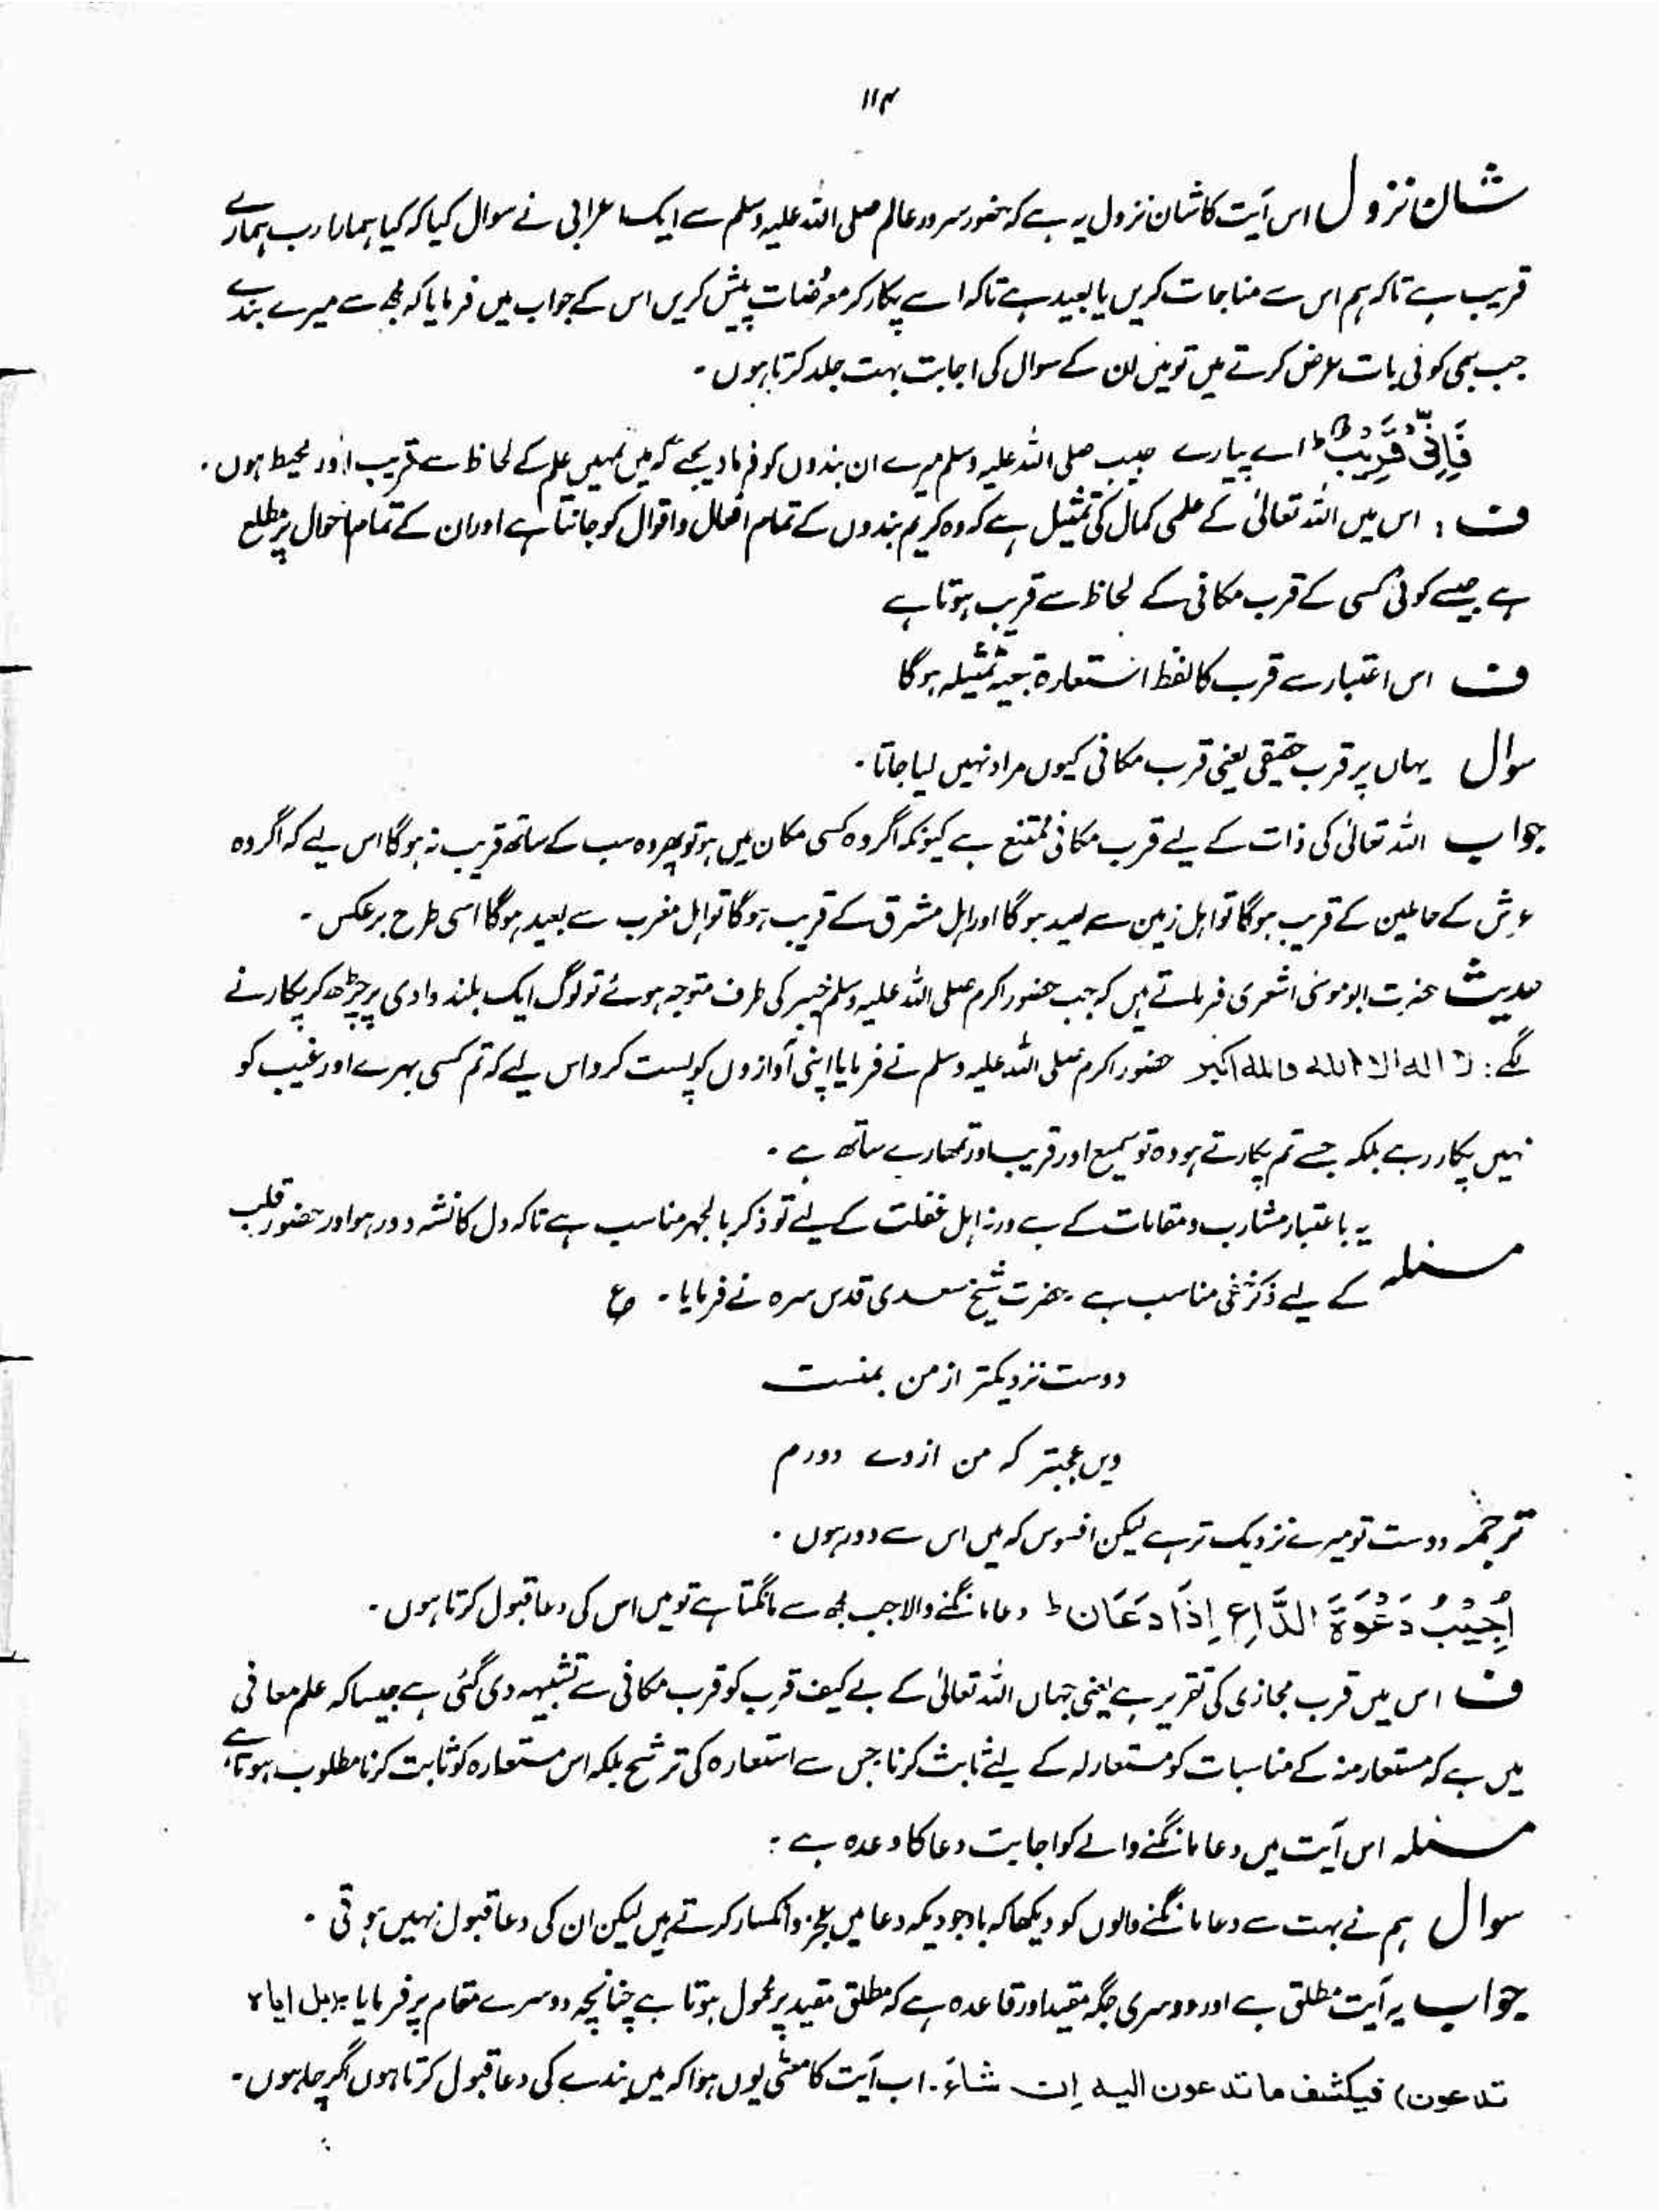 ۱۱۴
شان نزول اس آیت کا شان نزول یہ ہے کہ حضور سرور عالم صلی اللہ علیہ وسلم سے ایک اعرابی نے سوال کیا کہ کیا ہمارا رب ہمارے
قریب ہے تاکہ ہم اس سے مناجات کریں یا بعید ہے تاکہ اسے پکار کر معروضات پیش کریں اس کے جواب میں فرمایا کہ مجھ سے میرے بندے
جب بھی کوئی بات عرض کرتے ہیں تو میں ان کے سوال کی اجابت بہت جلد کرتا ہوں ۔
فَاِنِّیْ قَرِیْبٌ ط اے پیارے حبیب صلی اللہ علیہ وسلم میرے ان بندوں کو فرما دیجیے کہ میں تمہیں علم کے لحاظ سے قریب اور محیط ہوں ۔
ف : اس میں اللہ تعالیٰ کے علمی کمال کی تمثیل ہے کہ وہ کریم بندوں کے تمام افعال و اقوال کو جانتا ہے اور ان کے تمام احوال پر مطلع
ہے جیسے کوئی کسی کے قرب مکانی کے لحاظ سے قریب ہوتا ہے
ف اس اعتبار سے قرب کا لفظ استعارۃ تبعیہ تمثیلہ ہو گا
سوال یہاں پر قرب حقیقی یعنی قرب مکانی کیوں مراد نہیں لیا جاتا ۔
جواب اللہ تعالیٰ کی ذات کے لیے قرب مکانی ممتنع ہے کیونکہ اگر وہ کسی مکان میں ہو تو پھر وہ سب کے ساتھ قریب نہ ہو گا اس لیے کہ اگر وہ
عرش کے حاملین کے قریب ہو گا تو اہل زمین سے بعید ہو گا اور اہل مشرق کے قریب ہو گا تو اہل مغرب سے بعید ہو گا اسی طرح برعکس ۔
حدیث حضرت ابو موسیٰ اشعری فرماتے ہیں کہ جب حضور اکرم صلی اللہ علیہ وسلم خیبر کی طرف متوجہ ہوئے تو لوگ ایک بلند وادی پر چڑھ کر پکارنے
لگے : لا الہ الا اللہ واللہ اکبر حضور اکرم صلی اللہ علیہ وسلم نے فرمایا اپنی آوازوں کو پست کرو اس لیے کہ تم کسی بہرے اور غیب کو
نہیں پکار رہے بلکہ جسے تم پکارتے ہو وہ تو سمیع اور قریب اور تمہارے ساتھ ہے ۔
یہ باعتبار مشارب و مقامات کے ہے ورنہ اہل غفلت کے لیے تو ذکر بالجہر مناسب ہے تاکہ دل کا نشہ دور ہو اور حضور قلب
مسئلہ کے لیے ذکر خفی مناسب ہے ۔ حضرت شیخ سعدی قدس سرہ نے فرمایا ۔ ع
دوست نزدیکتر از من بمنست
ویں عجبتر کہ من ازوے دورم
ترجمہ دوست تو میرے نزدیک تر ہے لیکن افسوس کہ میں اس سے دور ہوں ۔
اُجِیْبُ دَعْوَۃَ الدَّاعِ اِذَا دَعَانِ ط دعا مانگنے والا جب مجھ سے مانگتا ہے تو میں اس کی دعا قبول کرتا ہوں ۔
ف اس میں قرب مجازی کی تقریر ہے یعنی جہاں اللہ تعالیٰ کے بے کیف قرب کو قرب مکانی سے تشبیہہ دی گئی ہے جیسا کہ علم معانی
میں ہے کہ مستعار منہ کے مناسبات کو مستعار لہ کے لیے ثابت کرنا جس سے استعارہ کی ترشیح بلکہ اس مستعارہ کو ثابت کرنا مطلوب ہوتا ہے
مسئلہ اس آیت میں دعا مانگنے والے کو اجابت دعا کا وعدہ ہے ؛
سوال ہم نے بہت سے دعا مانگنے والوں کو دیکھا کہ باوجودیکہ دعا میں عجز و انکسار کرتے ہیں لیکن ان کی دعا قبول نہیں ہوتی ۔
جواب یہ آیت مطلق ہے اور دوسری جگہ مقید اور قاعدہ ہے کہ مطلق مقید پر محمول ہوتا ہے چنانچہ دوسرے مقام پر فرمایا بل ایاہ
تدعون) فیکشف ما تدعون الیہ اِن شاءَ ۔ اب آیت کا معنی یوں ہوا کہ میں بندے کی دعا قبول کرتا ہوں اگر چاہوں ۔